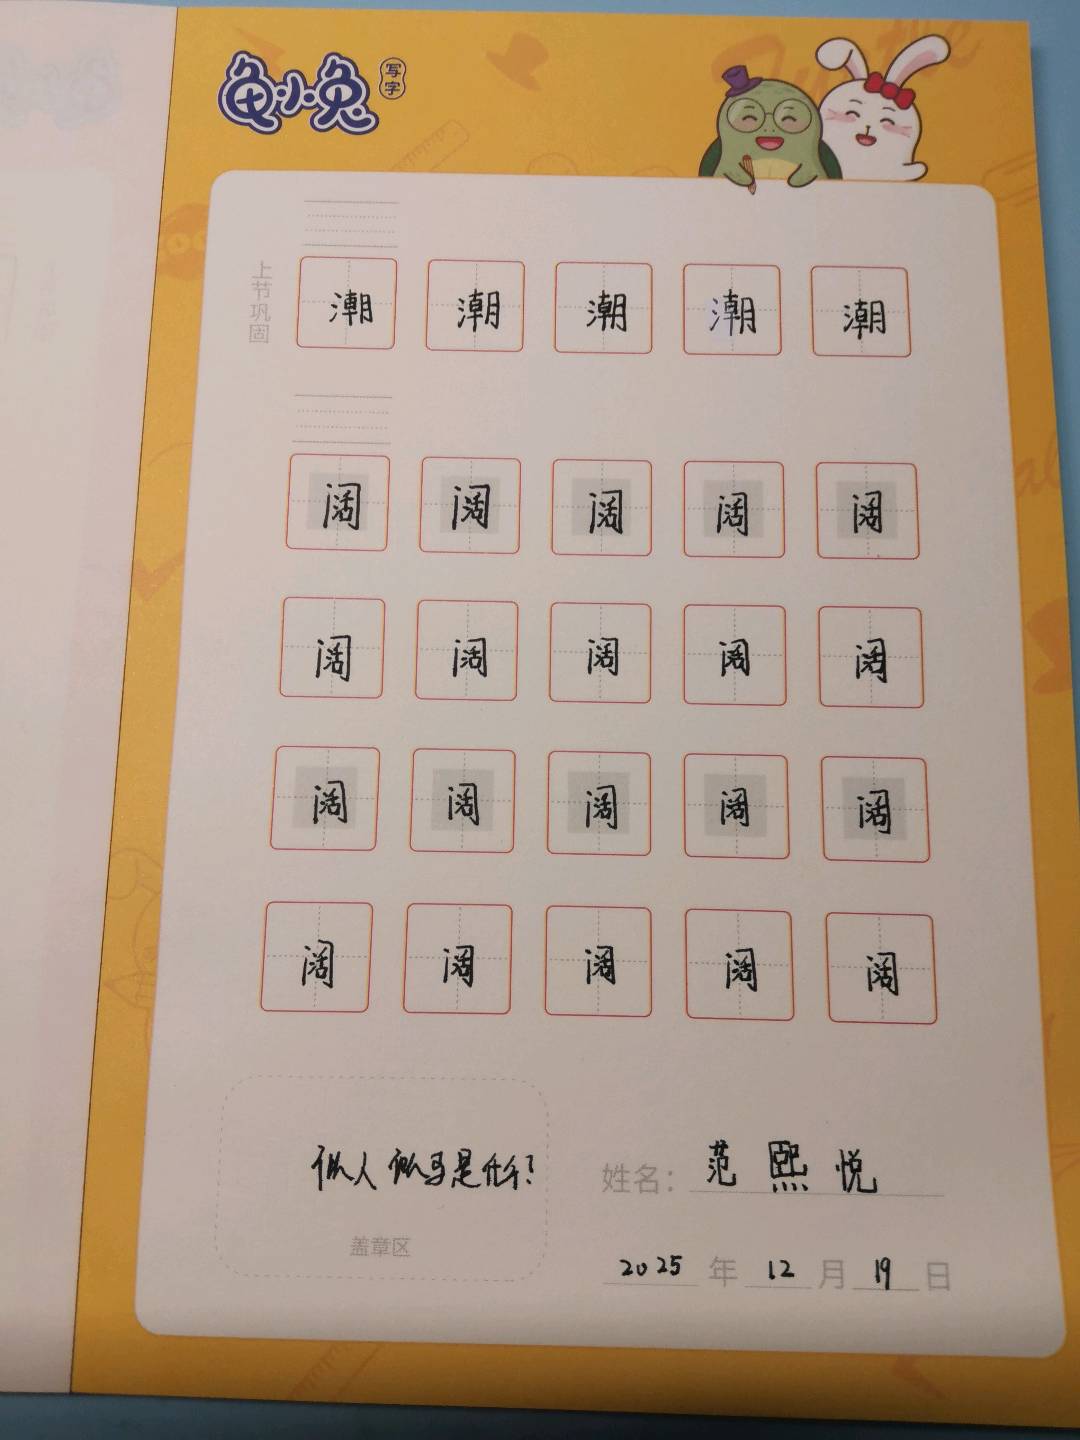 龟小兔 写字
上节巩固
潮 潮 潮 潮 潮
阔 阔 阔 阔 阔
阔 阔 阔 阔 阔
阔 阔 阔 阔 阔
阔 阔 阔 阔 阔
似人似马是什么?
盖章区
姓名: 范熙悦
2025 年 12 月 19 日